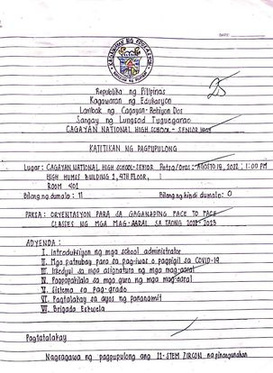 DATE:
KAGAWARAN NG EDUKASYON
25
Republika ng Pilipinas
Kagawaran ng Edukasyon
Lambak ng Cagayan - Rehiyon Dos
Sangay ng Lungsod Tuguegarao
CAGAYAN NATIONAL HIGH SCHOOL - SENIOR HIGH
KATITIKAN NG PAGPUPULONG
Lugar: CAGAYAN NATIONAL HIGH SCHOOL-SENIOR Petsa/Oras: AGOSTO 19, 2022, 1:00 PM
HIGH HUMSS BUILDING 2, 4TH FLOOR,
ROOM 402
Bilang ng dumalo: 11 Bilang ng hindi dumalo: 0
PAKSA: ORYENTASYON PARA SA GAGANAPING FACE TO FACE
CLASSES NG MGA MAG-AARAL SA TAONG 2022-2023
ADYENDA:
I. Introduksiyon ng mga school administrator
II. Mga patnubay para sa pag-iwas o pagpigil sa COVID-19
III. Iskedyul sa mga asignatura ng mga mag-aaral
IV. Pagpapakilala sa mga guro ng mga mag-aaral
V. Sistema sa pag-grado
VI. Pagtalakay sa ayos ng pananamit
VII. Brigada Eskwela
Pagtatalakay
Nagsagawa ng pagpupulong ang 11-STEM ZIRCON na pinangunahan